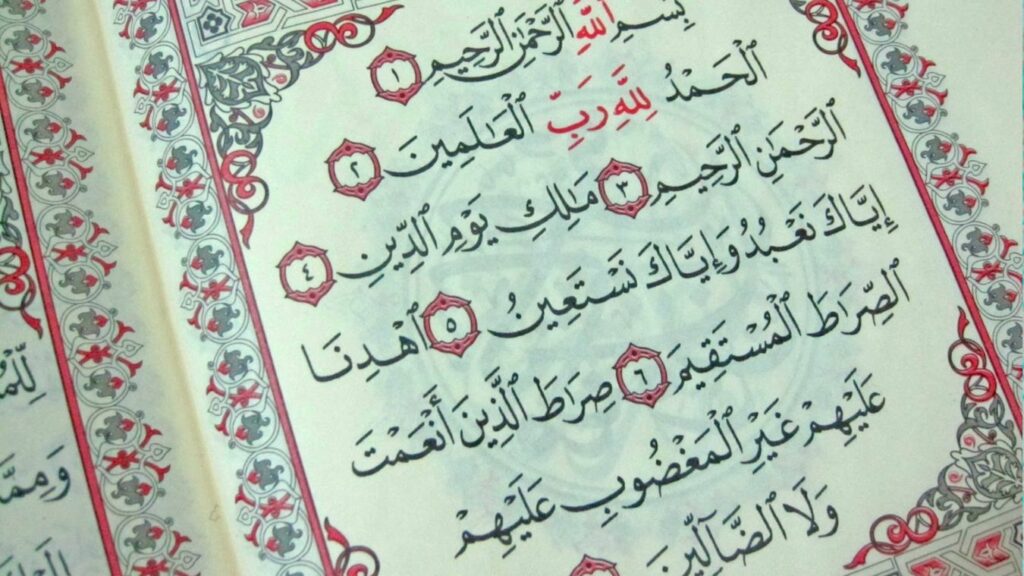 بِسْمِ ٱللَّهِ ٱلرَّحْمَٰنِ ٱلرَّحِيمِ ١
ٱلْحَمْدُ لِلَّهِ رَبِّ ٱلْعَٰلَمِينَ ٢
ٱلرَّحْمَٰنِ ٱلرَّحِيمِ ٣ مَٰلِكِ يَوْمِ ٱلدِّينِ ٤
إِيَّاكَ نَعْبُدُ وَإِيَّاكَ نَسْتَعِينُ ٥ ٱهْدِنَا
ٱلصِّرَٰطَ ٱلْمُسْتَقِيمَ ٦ صِرَٰطَ ٱلَّذِينَ أَنْعَمْتَ
عَلَيْهِمْ غَيْرِ ٱلْمَغْضُوبِ عَلَيْهِمْ
وَلَا ٱلضَّآلِّينَ
وَمِمَّا